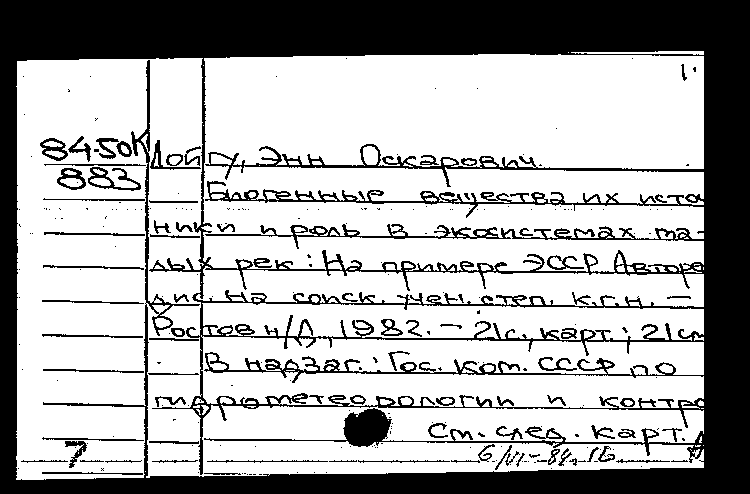 1.
84.50К Лойгу, Энн Оскарович.
883
Биогенные вещества их исто
ники и роль в экосистемах ма-
лых рек : На примере ЭССР Авторе
дис. на соиск. учен. степ. к.г.н. —
Ростов н/Д, 1982. – 21 с., карт.; 21 см
В надзаг.: Гос. ком. СССР по
гидрометеорологии и контро
См. след. карт.
7
6/VI-84г.